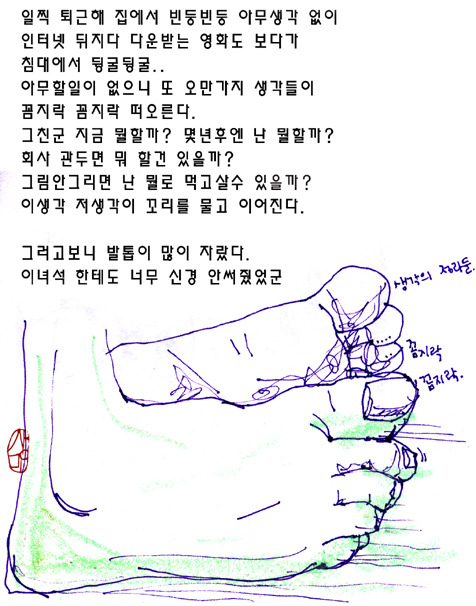 일찍 퇴근해 집에서 빈둥빈둥 아무생각 없이
인터넷 뒤지다 다운받는 영화도 보다가
침대에서 뒹굴뒹굴..
아무할일이 없으니 또 오만가지 생각들이
꼼지락 꼼지락 떠오른다.
그친군 지금 뭘할까? 몇년후엔 난 뭘할까?
회사 관두면 뭐 할건 있을까?
그림안그리면 난 뭘로 먹고살수 있을까?
이생각 저생각이 꼬리를 물고 이어진다.
그러고보니 발톱이 많이 자랐다.
이녀석 한테도 너무 신경 안써줬었군
생각의
꼼지락
꼼지락.